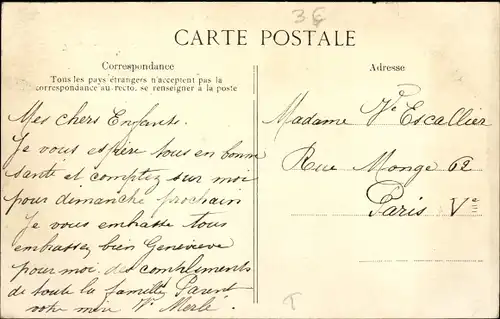 3
CARTE POSTALE
Correspondance
Tous les pays étrangers n'acceptent pas la
correspondance au recto. se renseigner à la poste
Adresse
Mes chers Enfants.
Je vous espère tous en bonne
santé et comptez sur moi
pour dimanche prochain
Je vous embrasse tous
embrassez bien Geneviève
pour moi des compliments
de toute la famille Parent
votre mère Vve Merlé
Madame Ve Escallier
Rue Monge 62
Paris Ve
T